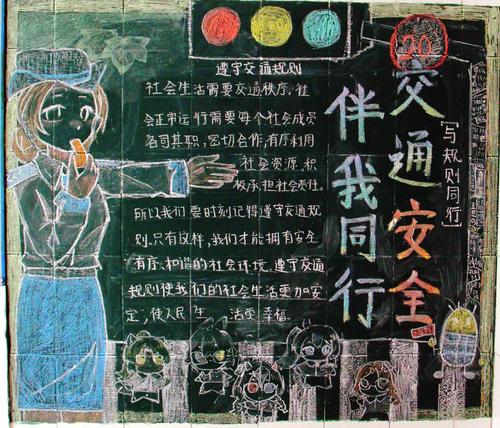 20
交通安全
伴我同行
[写规则同行]
遵守交通规则
社会生活需要交通秩序,社
会正常运行需要每个社会成员
各司其职,密切合作,有序利用
社会资源,积
极承担社会责任.
所以我们要时刻记得遵守交通规
则.只有这样,我们才能拥有安全
有序、和谐的社会环境.遵守交通
规则使我们的社会生活更加安
定,使人民生活更幸福.